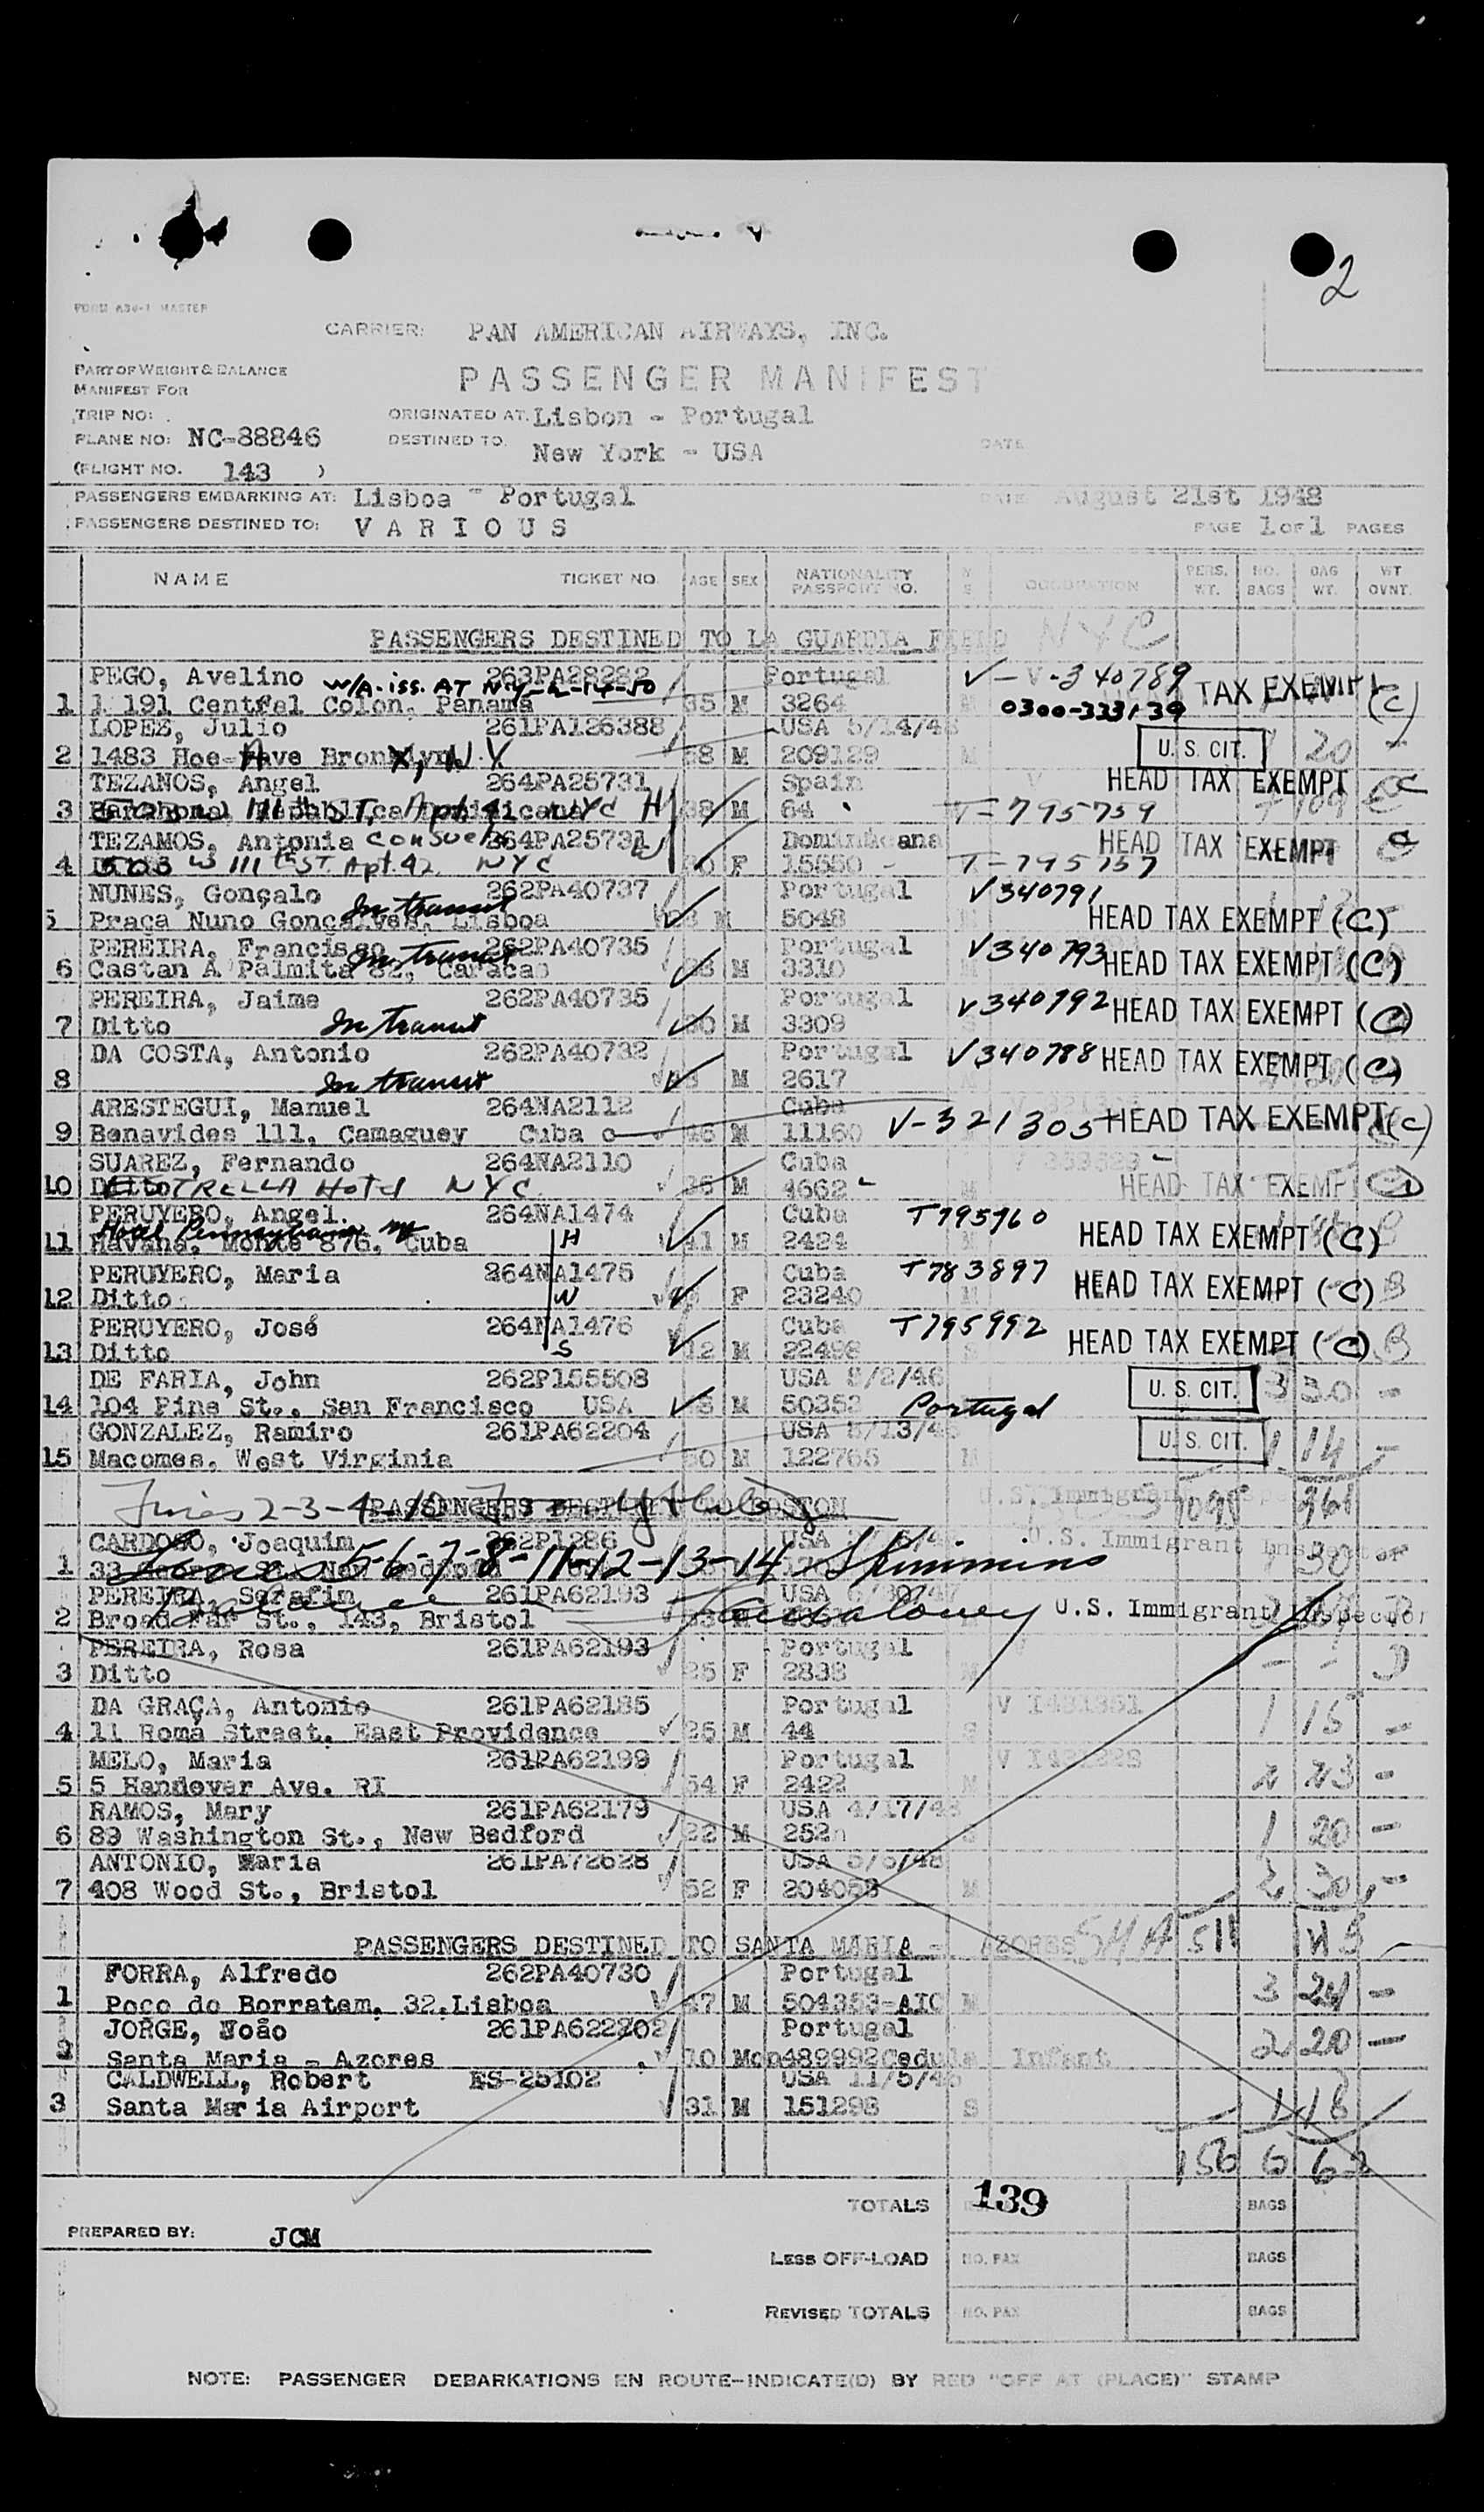 2
FORM 434-1 MASTER
CARRIER: PAN AMERICAN AIRWAYS, INC.
PART OF WEIGHT & BALANCE
MANIFEST FOR
PASSENGER MANIFEST
TRIP NO:
ORIGINATED AT. Lisbon - Portugal
PLANE NO: NC-88846
DESTINED TO. New York - USA
DATE
(FLIGHT NO. 143 )
PASSENGERS EMBARKING AT: Lisboa - Portugal
DATE August 21st 1948
PASSENGERS DESTINED TO: VARIOUS
PAGE 1 OF 1 PAGES
NAME TICKET NO. AGE SEX NATIONALITY PASSPORT NO. M S OCCUPATION PERS. WT. NO. BAGS BAG WT. WT OVNT.
PASSENGERS DESTINED TO LA GUARDIA FIELD NYC
PEGO, Avelino 263PA28282 Portugal V-V-340789
W/A-iss. AT N.Y-2-14-50
1 191 Central Colon, Panama 35 M 3264 0300-333139 TAX EXEMPT (C)
LOPEZ, Julio 261PA126388 USA 5/14/48
2 1483 Hoe Ave Bronx, N.Y 38 M 209129 M U.S. CIT. 20 -
TEZANOS, Angel 264PA25731 Spain HEAD TAX EXEMPT C
3 W 111th ST, Apt. 42 NYC H 38 M 64 T-795759
TEZAMOS, Antonia Consuelo 264PA25731 W Dominicana HEAD TAX EXEMPT C
4 503 W 111th ST. Apt. 42 NYC F 15550 - T-795757
NUNES, Gonçalo 262PA40737 Portugal V340791
In transit
5 Praça Nuno Gonçalves, Lisboa M 5048 HEAD TAX EXEMPT (C)
PEREIRA, Francisco 262PA40735 Portugal V340793 HEAD TAX EXEMPT (C)
In transit
6 Castan A Palmita 82, Caracas M 3310
PEREIRA, Jaime 262PA40735 Portugal V340792 HEAD TAX EXEMPT (C)
7 Ditto In transit 30 M 3309
DA COSTA, Antonio 262PA40732 Portugal V340788 HEAD TAX EXEMPT (C)
8 In transit M 2617
ARESTEGUI, Manuel 264NA2112 Cuba
9 Benavides 111, Camaguey Cuba 46 M 11160 V-321305 HEAD TAX EXEMPT (C)
SUAREZ, Fernando 264NA2110 Cuba V 359629 -
10 ESTRELLA Hotel NYC 36 M 4662 HEAD TAX EXEMPT (C)
PERUYERO, Angel. 264NA1474 Cuba T795760
Hotel Pennsylvania NY
11 Havana, Monte 876, Cuba H 41 M 2424 HEAD TAX EXEMPT (C) B
PERUYERO, Maria 264NA1475 Cuba T783897
12 Ditto W F 23240 HEAD TAX EXEMPT (C) B
PERUYERO, José 264NA1476 Cuba T795992
13 Ditto S 12 M 22498 HEAD TAX EXEMPT (C) B
DE FARIA, John 262P155508 USA 8/2/46 U.S. CIT. 3 30 -
14 104 Pine St., San Francisco USA M 50353 Portugal
GONZALEZ, Ramiro 261PA62204 USA 5/13/48 U.S. CIT. 1 14 -
15 Macomes, West Virginia 50 M 122765 M
PASSENGERS DESTINED TO BOSTON
Lines 2-3-4-10
U.S. Immigrant Inspector
CARDOSO, Joaquim 262P1286 USA U.S. Immigrant Inspector
1 Lines 5-6-7-8-11-12-13-14 Skimmins 1 30 -
PEREIRA, Serafim 261PA62193 USA
2 Broad St., 143, Bristol Balance U.S. Immigrant Inspector
PEREIRA, Rosa 261PA62193 Portugal V
3 Ditto 25 F 2838 - -
DA GRAÇA, Antonio 261PA62185 Portugal V I431351
4 11 Roma Street, East Providence 25 M 44 S 1 15 -
MELO, Maria 261PA62199 Portugal
5 5 Handover Ave. RI 54 F 2422 2 23 -
RAMOS, Mary 261PA62179 USA 4/17/48
6 89 Washington St., New Bedford 22 M 252n S 1 20 -
ANTONIO, Maria 261PA72628 USA 5/6/48
7 408 Wood St., Bristol 52 F 204053 M 2 30 -
PASSENGERS DESTINED TO SANTA MARIA - AZORES SMA 511
FORRA, Alfredo 262PA40730 Portugal
1 Poço do Borratem, 32,Lisboa 47 M 504353-AIC M 3 24 -
JORGE, João 261PA622202 Portugal
2 Santa Maria - Azores 10 Mon 489992Cedula Infant 2 20 -
CALDWELL, Robert ES-25102 USA 11/5/46
3 Santa Maria Airport 31 M 151298 S 1 18
156 6 62
TOTALS 139 BAGS
PREPARED BY: JCM
LESS OFF-LOAD NO. PAX BAGS
REVISED TOTALS NO. PAX BAGS
NOTE: PASSENGER DEBARKATIONS EN ROUTE-INDICATE(D) BY RED "OFF AT (PLACE)" STAMP